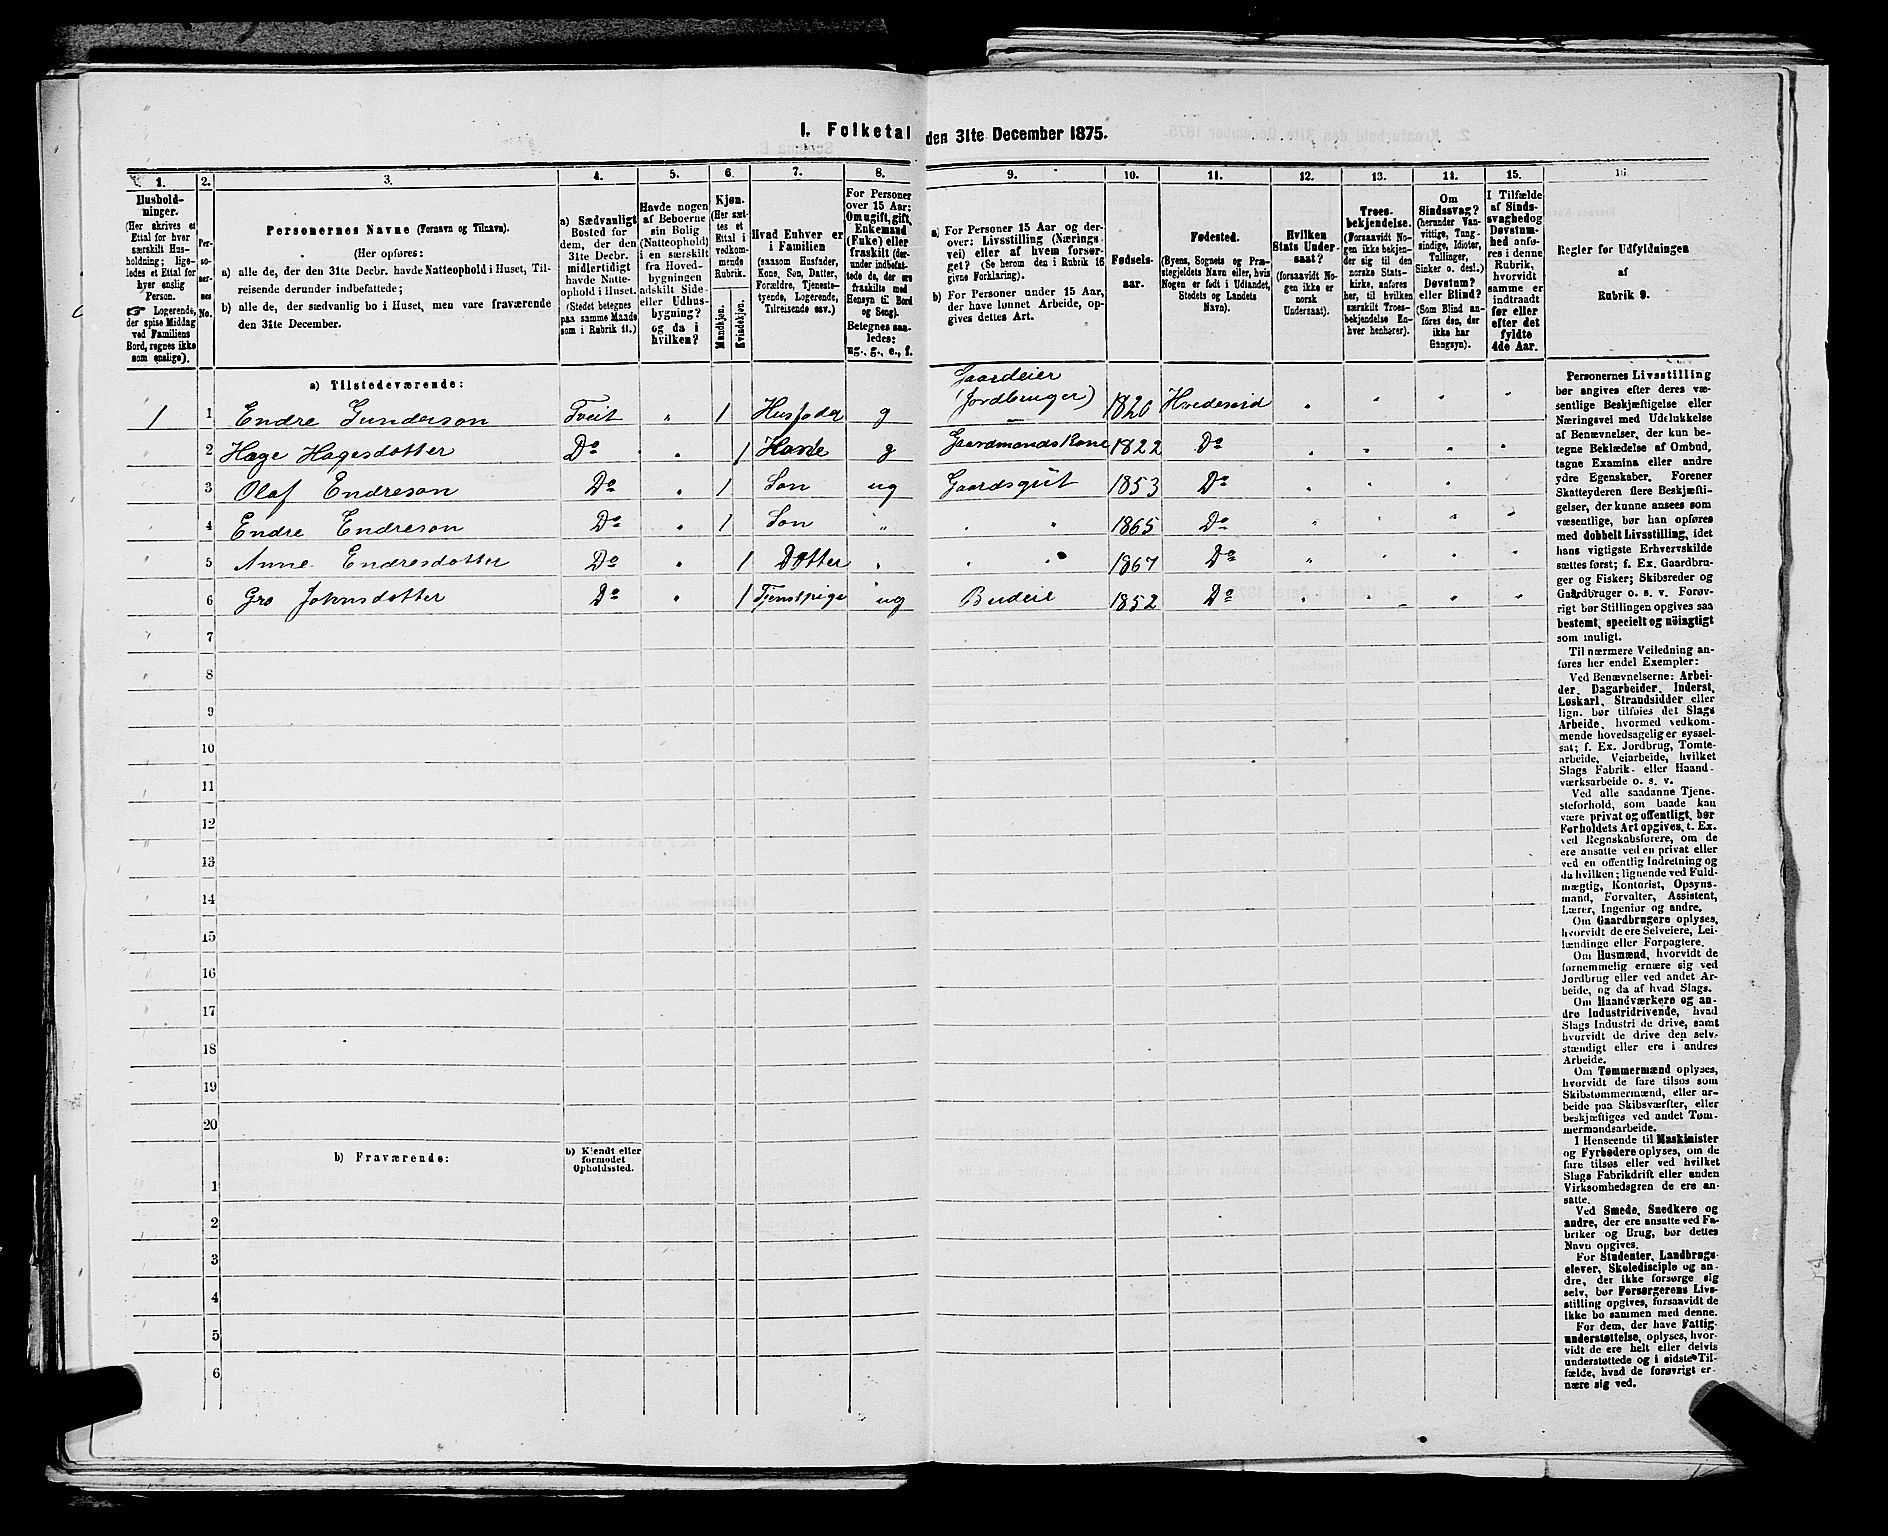 1. Folketal den 31te December 1875.
1. 2. 3. 4. 5. 6. 7. 8. 9. 10. 11. 12. 13. 14. 15. 16
Husholdninger.
(Her skrives et
Ettal for hver
særskilt Husholdning; ligeledes
et Ettal for
hver enslig
Person.
☞ Logerende,
der spise Middag
ved Familiens
Bord, regnes ikke
som enslige).
Personernes No.
Personernes Navne (Fornavn og Tilnavn).
(Her opføres:
a) alle de, der den 31te Decbr. havde Natteophold i Huset, Tilreisende
derunder indbefattede;
b) alle de, der sædvanlig bo i Huset, men vare fraværende
den 31te December.
a) Sædvanligt
Bosted for
dem, der den
31te Decbr.
midlertidigt
havde Natteophold
i Huset.
(Stedet betegnes
paa samme Maade
som i Rubrik 11.)
Havde nogen
af Beboerne
sin Bolig
(Natteophold)
i en særskilt
fra Hovedbygningen
adskilt Side-
eller Udhusbygning?
og da i
hvilken?
Kjøn.
(Her sættes
et
Ettal i
vedkommende
Rubrik.
Mandkjøn.
Kvindekjøn.
Hvad Enhver er
i Familien
(saasom Husfader,
Kone, Søn, Datter,
Forældre, Tjenestetyende,
Logerende,
Tilreisende osv.)
For Personer
over 15 Aar:
Om ugift, gift,
Enkemand
(Enke) eller
fraskilt (derunder
indbefattede
de, der ere
fraskilte med
Hensyn til Bord
og Seng).
Betegnes saaledes:
ug., g., e., f.
a) For Personer 15 Aar og derover:
Livsstilling (Næringsvei)
eller af hvem forsørget?
(Se herom den i Rubrik 16
givne Forklaring).
b) For Personer under 15 Aar,
der have lønnet Arbeide, opgives
dettes Art.
Fødselsaar.
Fødested.
(Byens, Sognets og Præstegjeldets
Navn eller, hvis
Nogen er født i Udlandet,
Stedets og Landets
Navn).
Hvilken
Stats Undersaat?
(forsaavidt Nogen
ikke er
norsk
Undersaat).
Troesbekjendelse.
(Forsaavidt Nogen
ikke bekjender
sig til den
norske Statskirke,
anføres
her, til hvilken
særskilt Troesbekjendelse
Enhver
henhører).
Om
Sindssvag?
(herunder Vanvittige,
Tungsindige,
Idioter,
Tullinger,
Sinker o. desl.)
Døvstum?
eller Blind?
(Som Blind anføres
den, der
ikke har
Gangsyn).
I Tilfælde
af Sindssvaghed
og
Døvstumhed
anføres
i denne
Rubrik,
hvorvidt
samme er
indtraadt
før eller
efter det
fyldte
4de Aar.
Regler for Udfyldningen
af
Rubrik 9.
a) Tilstedeværende:
1 1 Endre Gunderson Tveit „ 1 Husfader g Gaardeier (Jordbruger) 1820 Hvedeseid
2 Hæge Hagesdotter Do „ 1 g Gaardmandskone 1822 Do
3 Olaf Endreson Do „ 1 Søn ug Gaardsgut 1853 Do
4 Endre Endreson Do „ 1 Søn „ 1865 Do
5 Anne Endresdotter Do „ 1 Dotter „ 1867 Do
6 Gro Johnsdotter Do „ 1 Tjenstpige ug Budeie 1852 Do
7
8
9
10
11
12
13
14
15
16
17
18
19
20
b) Fraværende:
b) Kjendt eller
formodet
Opholdssted.
1
2
3
4
5
6
Personernes Livsstilling
bør angives efter deres væsentlige
Beskjæftigelse eller
Næringsvei med Udelukkelse
af Benævnelser, der kun betegne
Beklædelse af Ombud,
tagne Examina eller andre
ydre Egenskaber. Forener
Skatteyderen flere Beskjæftigelser,
der kunne ansees som
væsentlige, bør han opføres
med dobbelt Livsstilling, idet
hans vigtigste Erhvervskilde
sættes først; f. Ex. Gaardbruger
og Fisker; Skibsreder og
Gaardbruger o. s. v. Forøvrigt
bør Stillingen opgives saa
bestemt, specielt og nöiagtigt
som muligt.
Til nærmere Veiledning anføres
her endel Exempler:
Ved Benævnelserne: Arbeider,
Dagarbeider, Inderst,
Løskarl, Strandsidder eller
lign. bør tilføies det Slags
Arbeide, hvormed vedkommende
hovedsagelig er sysselsat;
f. Ex. Jordbrug, Tomtearbeide,
Veiarbeide, hvilket
Slags Fabrik- eller Haandværksarbeide
o. s. v.
Ved alle saadanne Tjenesteforhold,
som baade kan
være privat og offentligt, bør
Forholdets Art opgives, t. Ex.
ved Regnskabsførere, om de
ere ansatte ved en privat eller
ved en offentlig Indretning og
da hvilken; lignende ved Fuldmægtig,
Kontorist, Opsynsmand,
Forvalter, Assistent,
Lærer, Ingeniør og andre.
Om Gaardbrugere oplyses,
hvorvidt de ere Selveiere, Leilændinge
eller Forpagtere.
Om Husmænd, hvorvidt de
fornemmelig ernære sig ved
Jordbrug eller ved andet Arbeide,
og da af hvad Slags.
Om Haandværkere og andre
Industridrivende, hvad
Slags Industri de drive, samt
hvorvidt de drive den selvstændigt
eller ere i andres
Arbeide.
Om Tømmermænd oplyses,
hvorvidt de fare tilsøs som
Skibstømmermænd, eller arbeide
paa Skibsværfter, eller
beskjæftiges ved andet Tømmermandsarbeide.
I Henseende til Maskinister
og Fyrbødere oplyses, om de
fare tilsøs eller ved hvilket
Slags Fabrikdrift eller anden
Virksomhedsgren de ere ansatte.
Ved Smede, Snedkere og
andre, der ere ansatte ved Fabriker
og Brug, bør dettes
Navn opgives.
For Studenter, Landbrugselever,
Skoledisciple og andre,
der ikke forsørge sig
selv, bør Forsørgerens Livsstilling
opgives, forsaavidt de
ikke bo sammen med denne.
For dem, der have Fattigunderstøttelse,
oplyses, hvorvidt
de ere helt eller delvis
understøttede og i sidste Tilfælde,
hvad de forøvrigt ernære
sig ved.